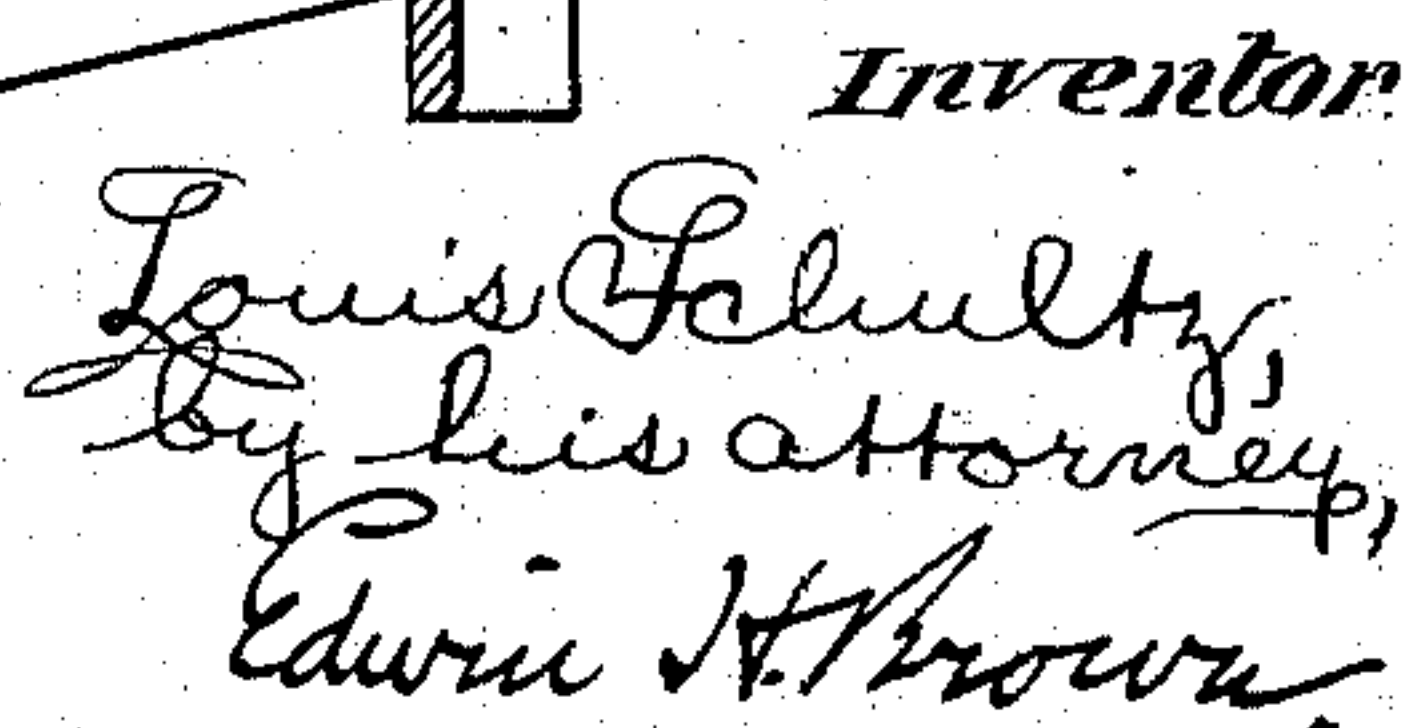 Inventor
Louis Schultz,
by his attorney,
Edwin H. Brown